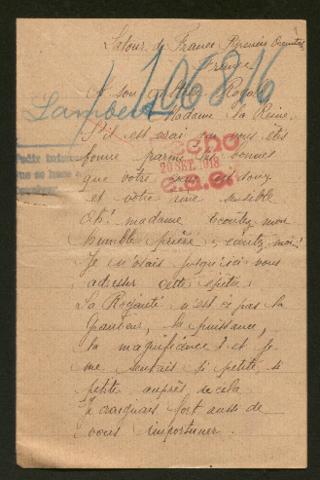 Latour de France Pyrénées Orientales
France
106816
A son altesse Royale
Lambert
Madame la Reine.
S'il est vrai que vous êtes
bonne parmi les bonnes
20 SET. 1918
que votre est doux
et votre âme sensible
Oh! madame écoutez mon
humble prière, écoutez moi!
Je n'osais jusqu'ici vous
adresser cette épître;
La Royauté n'est ce pas la
grandeur, la puissance,
la magnificence? et je
me sentais si petite si
petite auprès de cela
Je craignais fort aussi de
vous importuner.